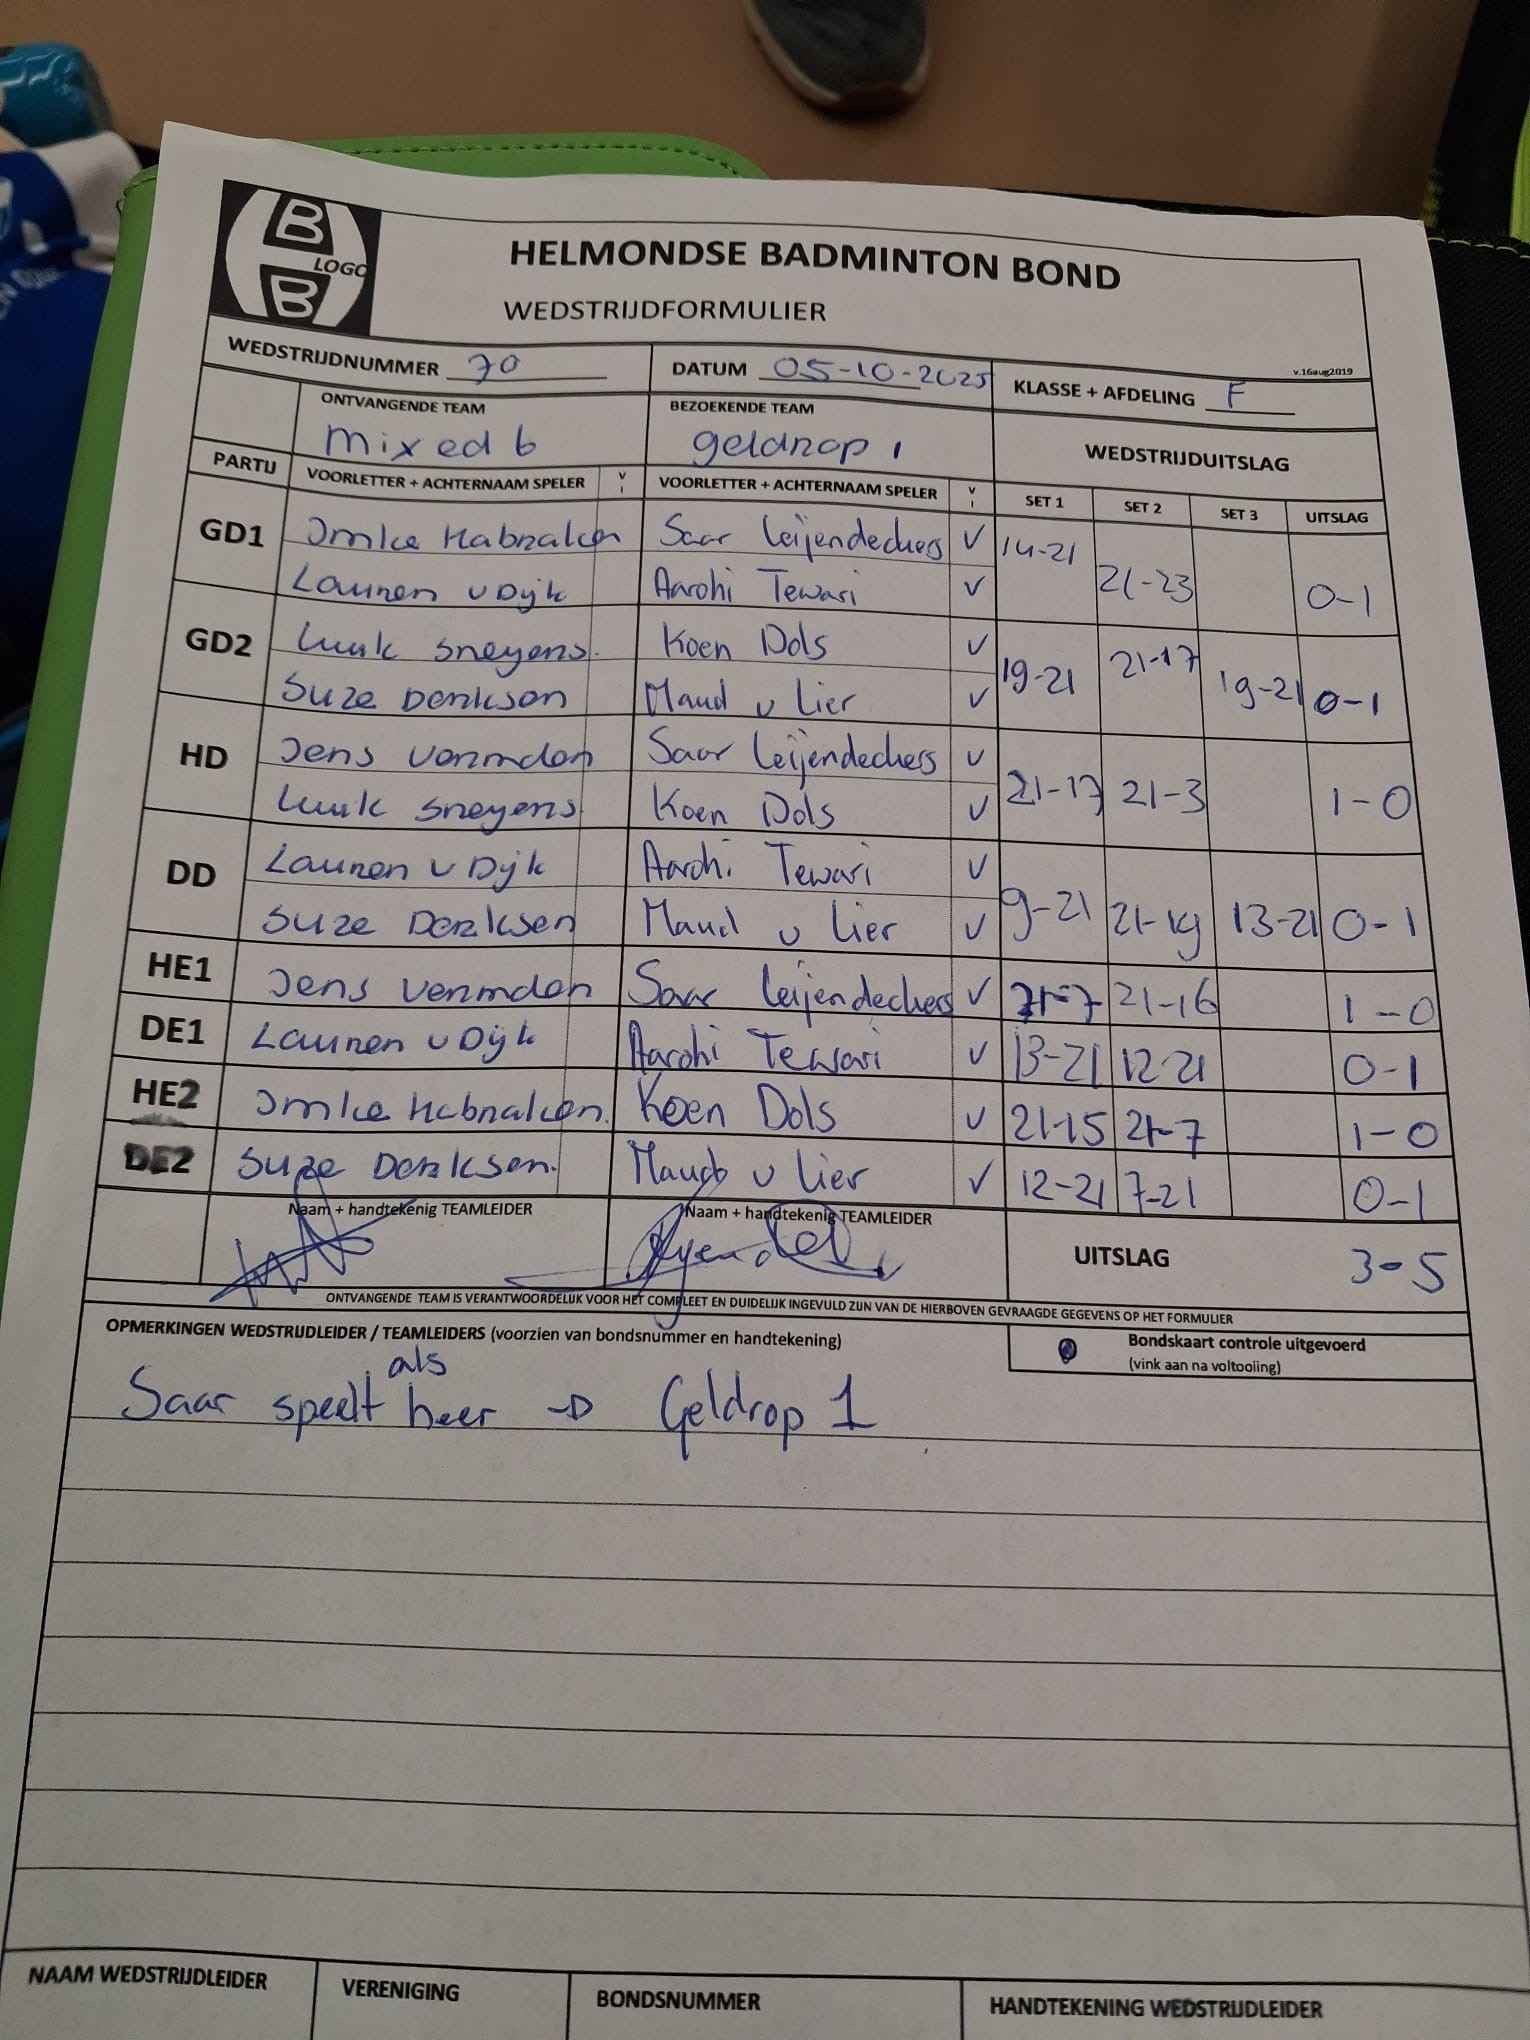 B LOGO B
HELMONDSE BADMINTON BOND
WEDSTRIJDFORMULIER
v.16aug2019
WEDSTRIJDNUMMER 70 DATUM 05-10-2025 KLASSE + AFDELING F
ONTVANGENDE TEAM BEZOEKENDE TEAM
mixed 6 geldrop 1 WEDSTRIJDUITSLAG
PARTIJ VOORLETTER + ACHTERNAAM SPELER V I VOORLETTER + ACHTERNAAM SPELER V I SET 1 SET 2 SET 3 UITSLAG
GD1 Imke Habraken Saar Leijendeckers V 14-21 21-23 0-1
Lauren v Dijk Aarohi Tewari V
GD2 Luuk Sneyers. Koen Dols V 19-21 21-17 19-21 0-1
Suze Derksen Maud v Lier V
HD Jens Vermden Saar Leijendeckers V 21-17 21-3 1-0
Luuk Sneyers Koen Dols V
DD Lauren v Dijk Aarohi Tewari V 9-21 21-19 13-21 0-1
Suze Derksen Maud v Lier V
HE1 Jens Vermden Saar Leijendeckers V 21-7 21-16 1-0
DE1 Lauren v Dijk Aarohi Tewari V 13-21 12-21 0-1
HE2 Imke Habraken. Koen Dols V 21-15 21-7 1-0
DE2 Suze Derksen. Maud v Lier V 12-21 7-21 0-1
Naam + handtekenig TEAMLEIDER Naam + handtekenig TEAMLEIDER
UITSLAG 3-5
ONTVANGENDE TEAM IS VERANTWOORDELIJK VOOR HET COMPLEET EN DUIDELIJK INGEVULD ZIJN VAN DE HIERBOVEN GEVRAAGDE GEGEVENS OP HET FORMULIER
OPMERKINGEN WEDSTRIJDLEIDER / TEAMLEIDERS (voorzien van bondsnummer en handtekening) Bondskaart controle uitgevoerd
(vink aan na voltooiing)
Saar speelt als heer → Geldrop 1
NAAM WEDSTRIJDLEIDER VERENIGING BONDSNUMMER HANDTEKENING WEDSTRIJDLEIDER